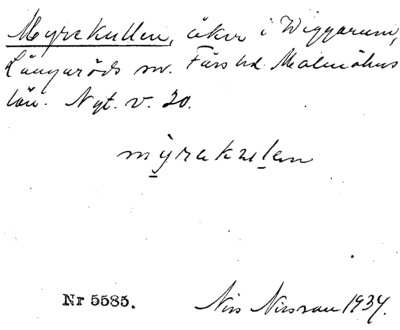 Myrekullen, åker i Wiggarum,
Långaröds sn. Färs hd. Malmöhus
län. Nyt. v. 20.
myrakulen
Nr 5585. Nils Nilsson 1934.